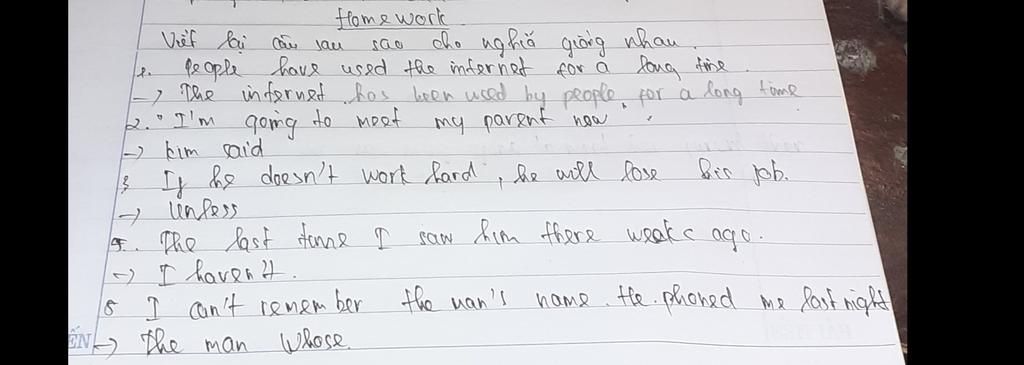 Homework
Viết lại câu sau sao cho nghĩa giống nhau.
1. People have used the internet for a long time
-> The internet has been used by people for a long time
2. "I'm going to meet my parent now
-> Kim said
3 If he doesn't work hard, he will lose his job.
-> Unless
4. The last time I saw him there weaks ago.
-> I haven't.
5 I can't remember the man's name. He phoned me last night
ẾN -> The man whose.